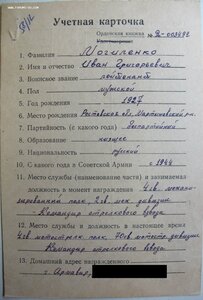 Учетная карточка
Орденская книжка
1. Фамилия Могиленко
2. Имя и отчество Иван Григорьевич
3. Воинское звание лейтенант
4. Пол мужской
5. Год рождения 1927
6. Место рождения Ростовская обл.
7. Партийность (с какого года) беспартийный
8. Образование низшее
9. Национальность русский
10. С какого года в Советской Армии с 1944
11. Место службы (наименование части) и занимаемая
должность в момент награждения 4 гв. механи-
зированный полк, 2 гв. мех. дивизии
Командир стрелкового взвода
12. Место службы и должность в настоящее время
полк, дивизии
Командир стрелкового взвода
13. Домашний адрес награжденного
г. Армавир,